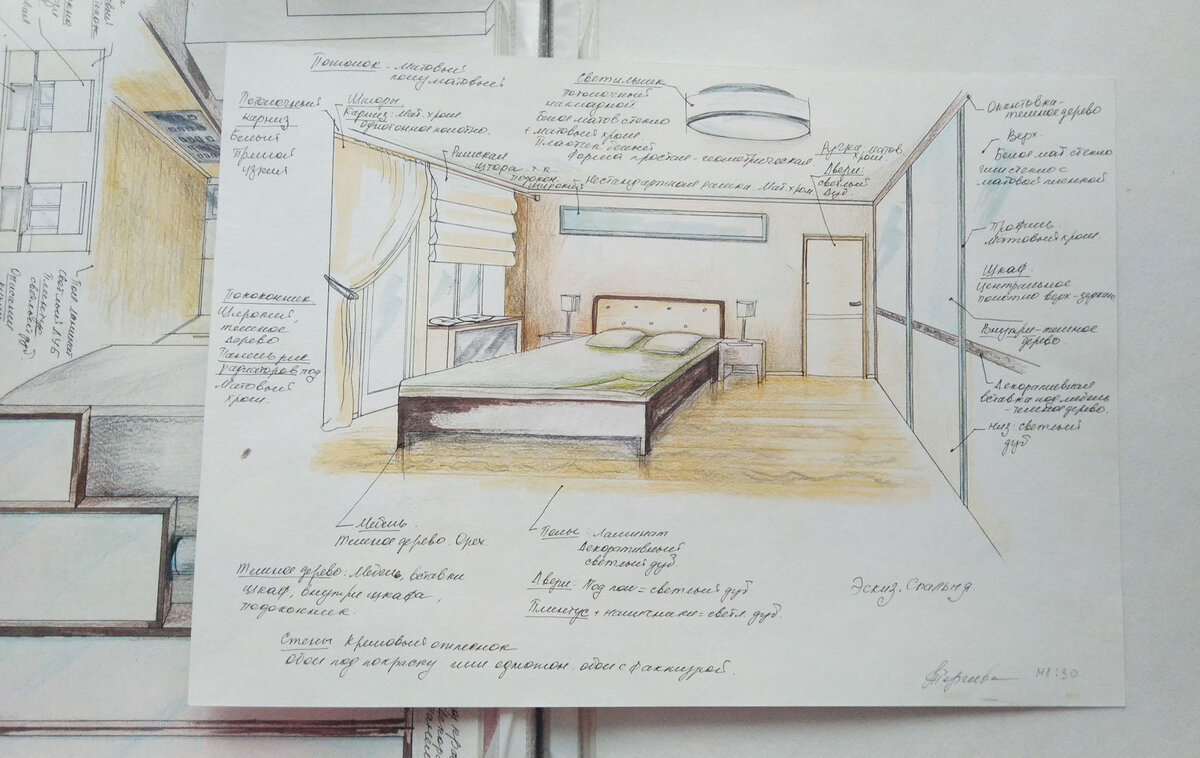 Потолок - матовый
полуматовый
Потолочный
карниз
Белый
прямой
узкий
Шторы
карниз: мат. хром
однотонное полотно.
Римская
штора т.к.
подокон.
широкий
Светильник
потолочный
накладной.
Белое матов стекло
+ матовый хром
Плафон
Форма простая - геометрическая
Нестандартная рамка мат. хром
Ручка матов
хром
Двери
светлый
дуб
Окантовка -
темное дерево
Верх.
Белое мат. стекло
или стекло с
матовой пленкой
Профиль
матовый хром.
Шкаф
центральное
полотно верх - зеркало
Внутри - темное
дерево.
Декоративная
вставка под мебель
- темное дерево.
низ: светлый
дуб
Подоконник.
Широкий,
темное
дерево
Панель для
радиаторов под
матовый
хром.
Мебель.
Темное дерево. Орех.
Полы: Ламинат
Декоративный
светлый дуб
Темное дерево: Мебель, вставки
шкаф, внутри шкафа,
подоконник.
Двери: Под пол = светлый дуб
Плинтус + наличники = светл дуб.
Эскиз. Спальня
Стены Кремовый оттенок
обои под покраску или однотон обои с фактурой.
М1:30